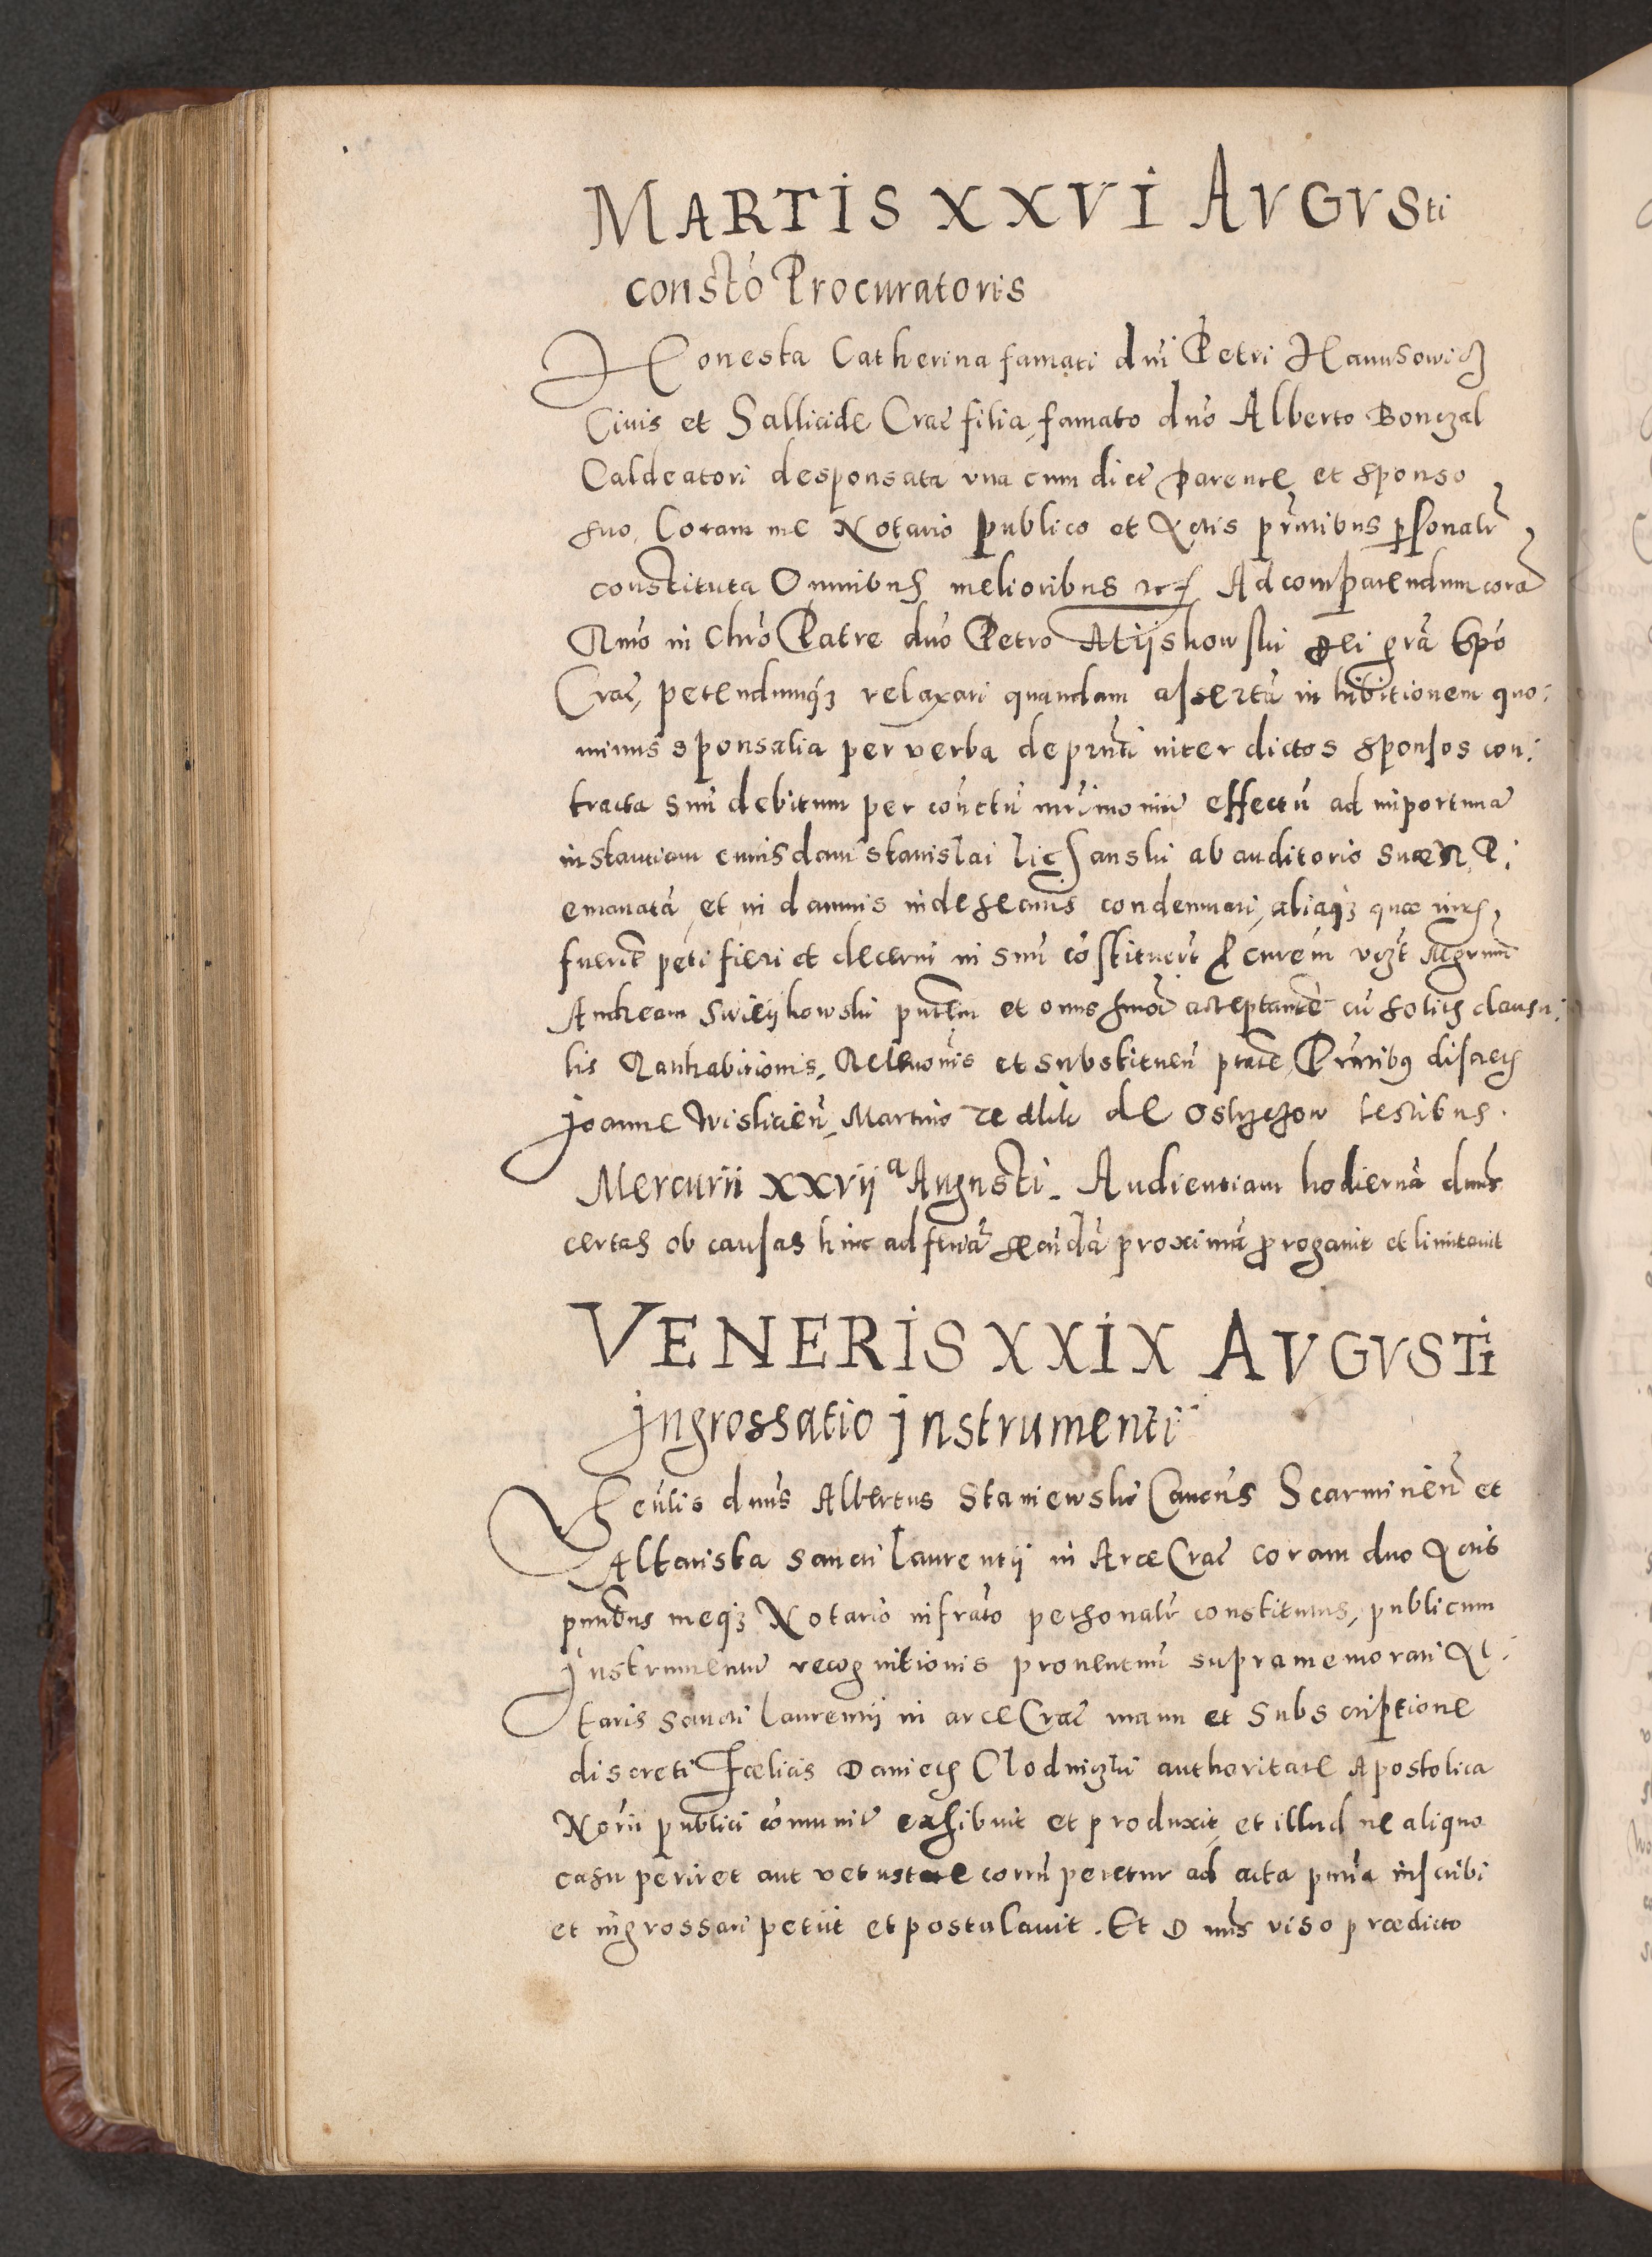 MARTIS XXVI AVGVSti
consto Procuratoris
Honesta Catherina famati dni Petri Hanusowicz
Ciuis et Sallicide Crac filia, famato dno Alberto Bonczal
Caldeatori desponsata vna cum dicto parente et sponso
suo, Coram me Notario publico et Actis prntibus personalr
constituta Omnibus melioribus etc Ad comparendum corã
Rmo in Chro Patre dno Petro Mijskowski Dei grã Epo
Crac, petendumq3 relaxari quandam assertã inhibitionem quo:
minus sponsalia per verba de prnti inter dictos sponsos con:
tracta suu debitum per conictu mrimoniu effectu ad importuna
instantiam cuiusdam Stanislai Licsanski ab auditorio suae R P:
emanatã, et in damnis inde secutis condemnari, aliaq3 quae iuris
fuerit peti fieri et decerni in suu costituerit Procurem vigt Mgrum
Andream Swieijkowski pntem et onus hmoi acceptante cu solitis clausu:
lis Rathabitionis, Releuonis et substituen ptate, Prntibus discretis
Joanne Wislicien, Martino de Oslyczow testibus.
Mercurii XXVIIa Augusti. Audientiam hodiernã dnus
certas ob causas hinc ad feriã secundã proximã prorogauit et limitauit
VENERIS XXIX AVGVSTi
Ingrossatio Instrumenti
Venlis dnus Albertus Staniewski Canonus Scarminen et
Altarista sancti Laurentij in Arce Crac coram dno Actis
pntibus meq3 Notario infrato personalr constitutus, publicum
Instrumentu recognitionis prouentuu supramemorati Al:
taris Sancti Laurentij in arce Crac manu et Subscriptione
discreti Foelicis Danielis Clodniczki authoritate Apostolica
Norii publici comunitu exhibuit et produxit, et illud ne aliquo
casu periret aut vetustate corrũperetur ad acta pntia inscribi
et ingrossari petiit et postulauit. Et Dnus viso praedicto